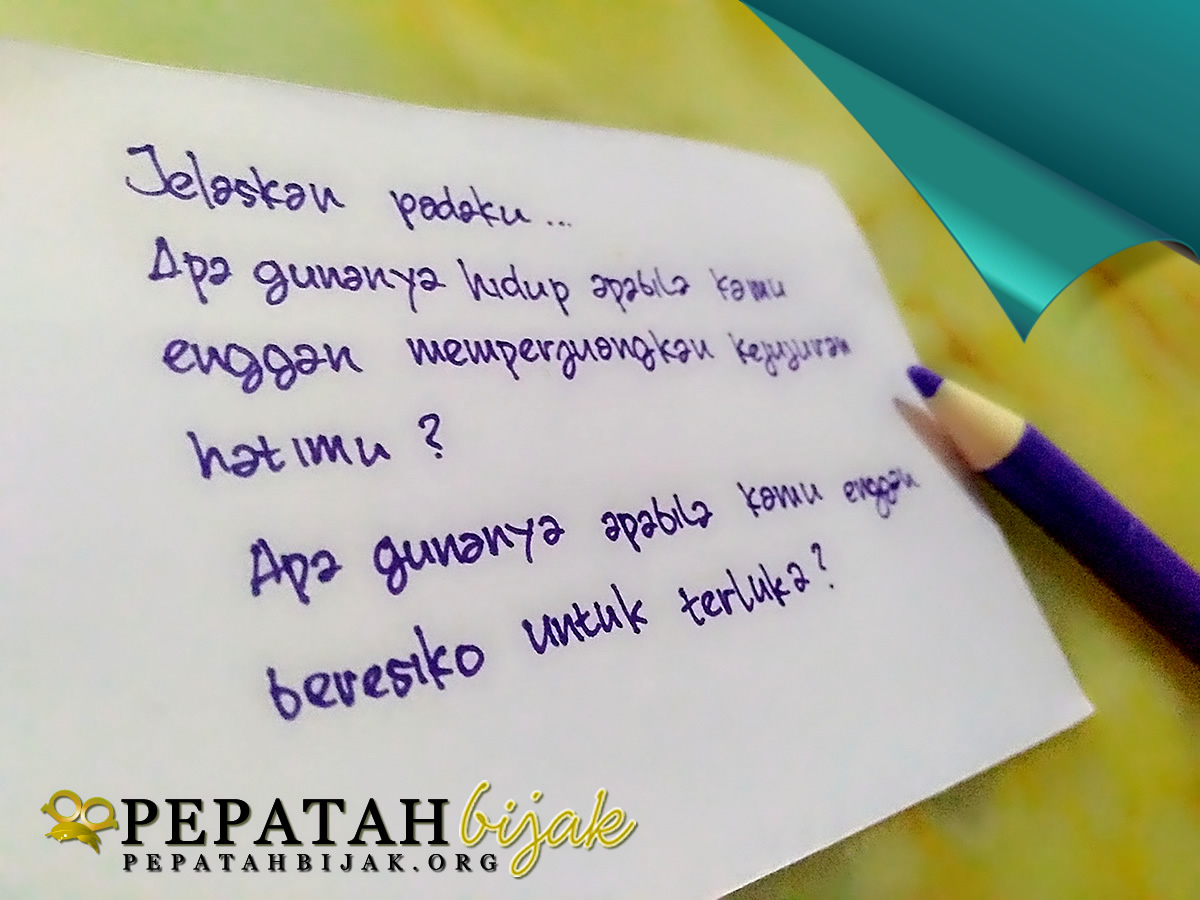 Jelaskan padaku...
Apa gunanya hidup apabila kamu
enggan memperjuangkan kejujuran
hatimu?
Apa gunanya apabila kamu enggan
beresiko untuk terluka?
PEPATAH bijak
PEPATAHBIJAK.ORG